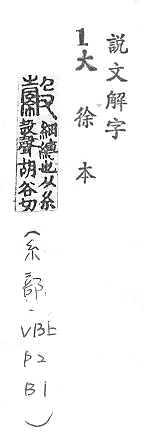 說文解字
1大徐本
縠 細縳也从糸
𣪊聲胡谷切
(糸部、VB上
P2
B1)